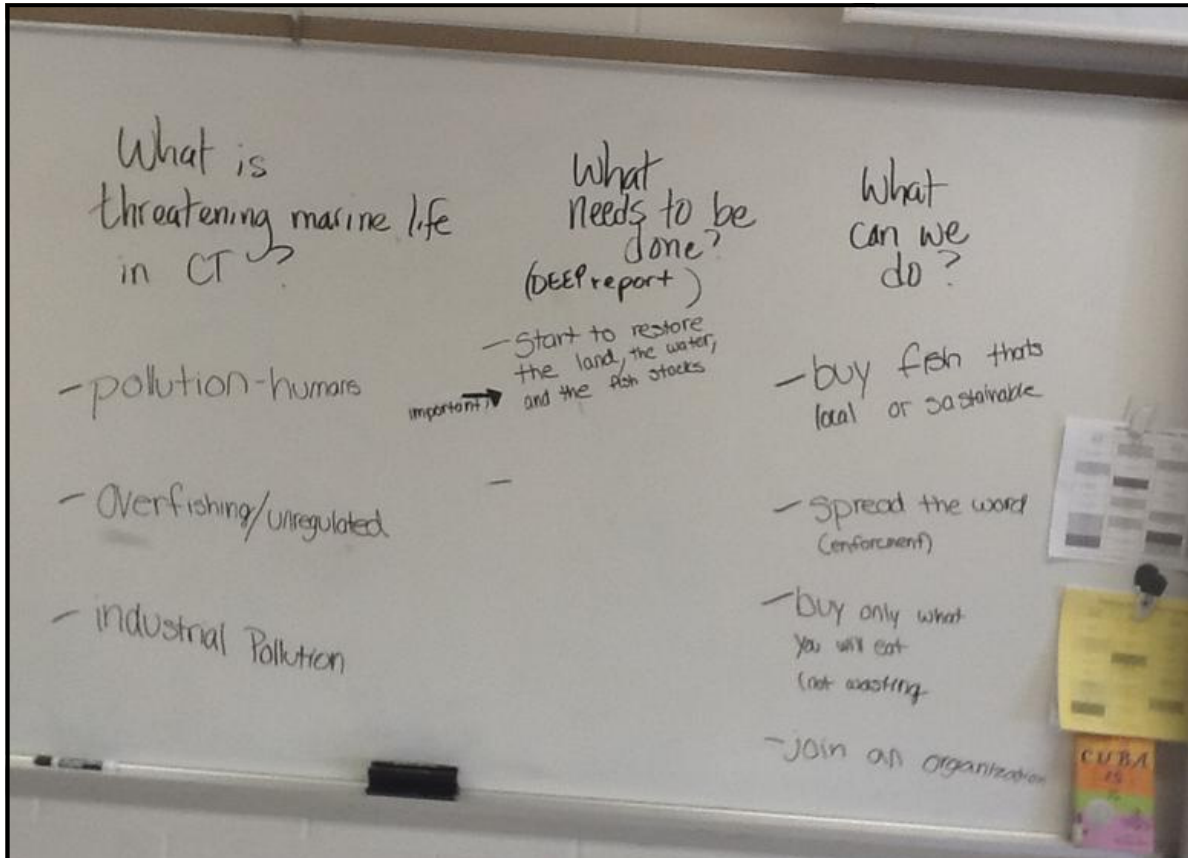 What is
threatening marine life
in CT ?
- pollution-humans
- Overfishing/unregulated
- industrial Pollution
What
needs to be
done?
(DEEP report)
- Start to restore
the land, the water,
and the fish stocks
important!
-
What
can we
do?
- buy fish thats
local or sastainable
- spread the word
(enforcment)
- buy only what
you will eat
(not wasting
- join an organization
CUBA
15